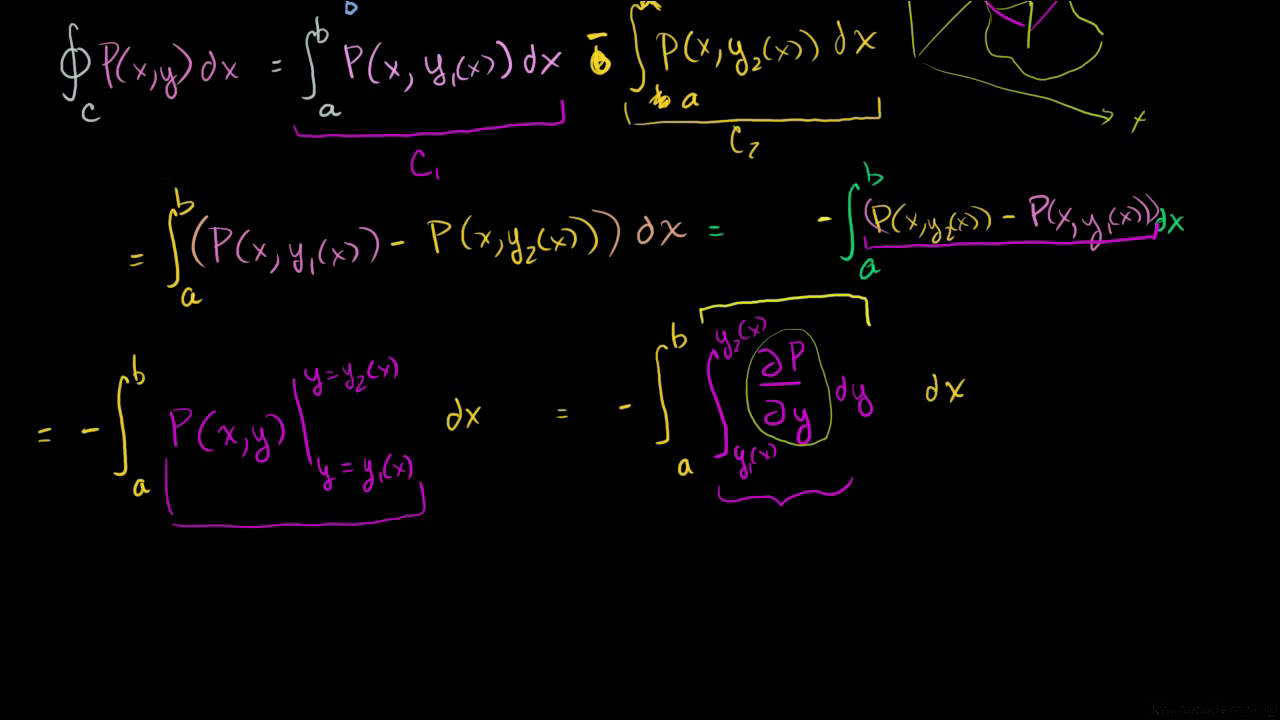 ∮_C P(x,y) dx = ∫_a^b P(x, y₁(x)) dx − ∫_a P(x, y₂(x)) dx
x
C₁
C₂
= ∫_a^b (P(x, y₁(x)) − P(x, y₂(x))) dx = − ∫_a^b (P(x, y₂(x)) − P(x, y₁(x))) dx
= − ∫_a^b P(x,y) |_{y = y₁(x)}^{y = y₂(x)} dx = − ∫_a^b ∫_{y₁(x)}^{y₂(x)} ∂P/∂y dy dx